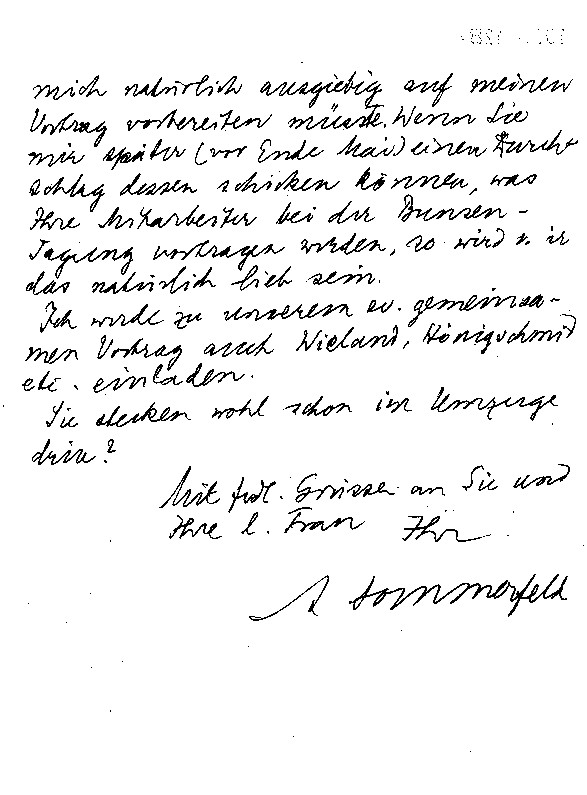 mich natürlich ausgiebig auf meinen
Vortrag vorbereiten müsste. Wenn Sie
mir später (vor Ende Mai) einen Durch-
schlag dessen schicken können, was
Ihre Mitarbeiter bei der Bunsen-
Tagung vortragen werden, so wird mir
das natürlich lieb sein.
Ich werde zu unserem ev. gemeinsa-
men Vortrag auch Wieland, Hönigschmid
etc. einladen.
Sie stecken wohl schon im Umzuge
drin?
Mit frdl. Grüssen an Sie und
Ihre l. Frau Ihr
A Sommerfeld